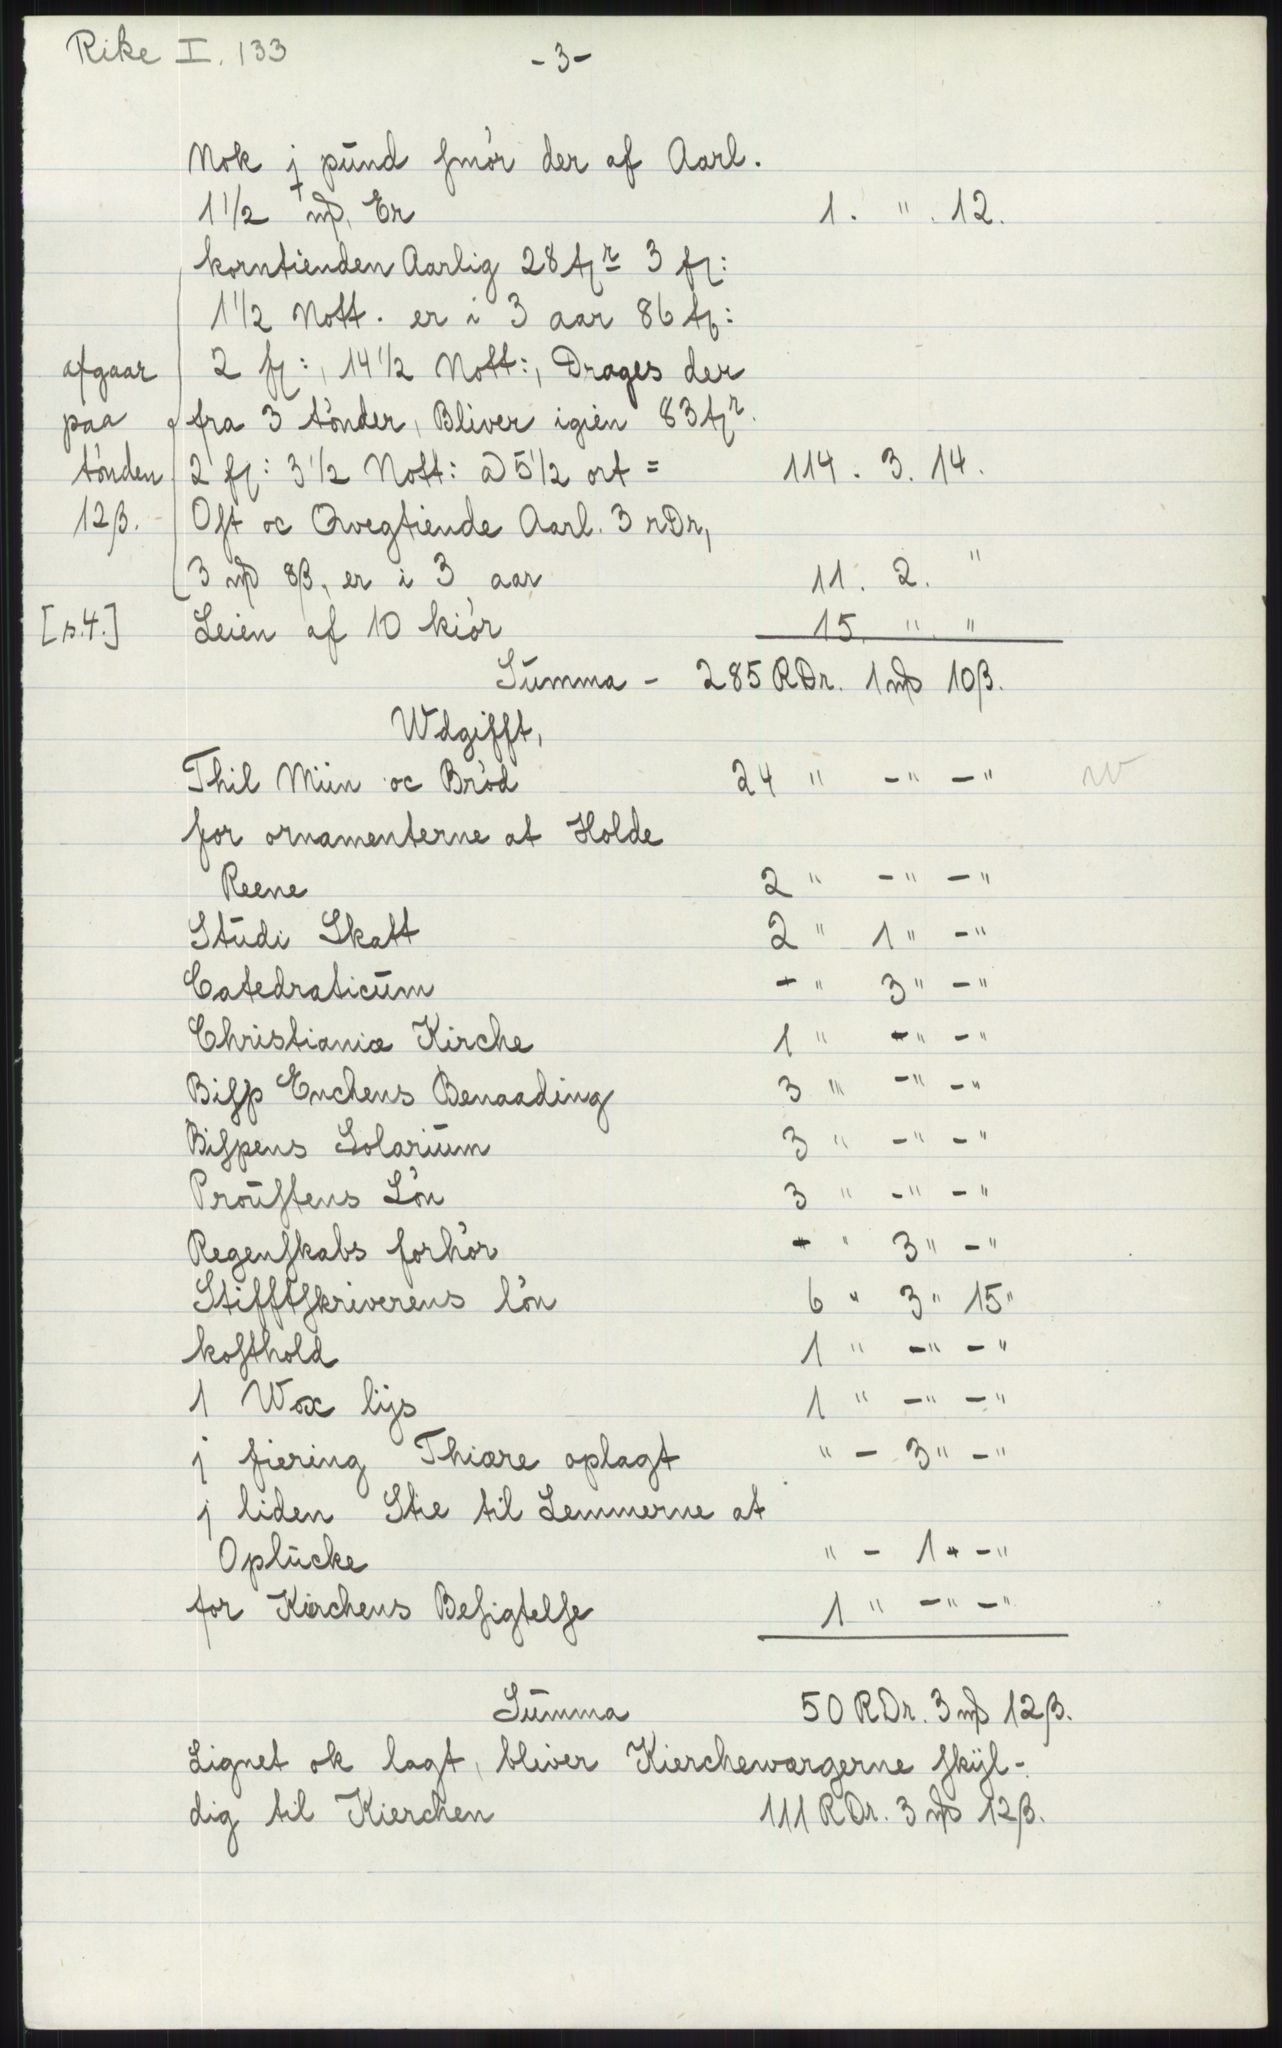 Rike I. 133
-3-
Nok j pund smör der af Aarl.
1½ mk, Er 1. " . 12.
korntienden Aarlig 28 tr 3 fj:
1½ Nott. er i 3 aar 86 tr:
afgaar 2 fj:, 14½ Nott:, Drages der
paa fra 3 tönder, Bliver igien 83 tr.
tönden 2 fj: 3½ Nott: a 5½ ort = 114 . 3. 14.
12β. Ost oc Qvegtiende Aarl. 3 rDr,
3 mk 8β, er i 3 aar 11. 2. "
[s.4.] Leien af 10 kiör 15. " "
Summa - 285 RDr. 1 mk 10β.
Wdgifft,
Thil Miin oc Bröd 24 " -" -"
for ornamenterne at Holde
Reene 2 " -" -"
Studi Skatt 2 " 1" -"
Catedraticum - " 3" -"
Christianiæ Kirche 1 " -" -"
Bisp Enchens Benaading 3 " -" -"
Bispens Solarium 3 " -" -"
Proustens Lön 3 " -" -"
Regenskabs forhör - " 3" -"
Stifftskriverens lön 6 " 3" 15"
kosthold 1 " -" -"
1 Wox lijs 1 " -" -"
j fiering Thiære oplagt " - 3" -"
j liden Stie til Lemmerne at
Oplucke " - 1 " -"
for Kirchens Besigtelse 1 " -" -"
Summa 50 RDr. 3 mk 12β.
Lignet ok lagt, bliver Kierchewærgerne skÿl-
dig til Kierchen 111 RDr. 3 mk 12β.